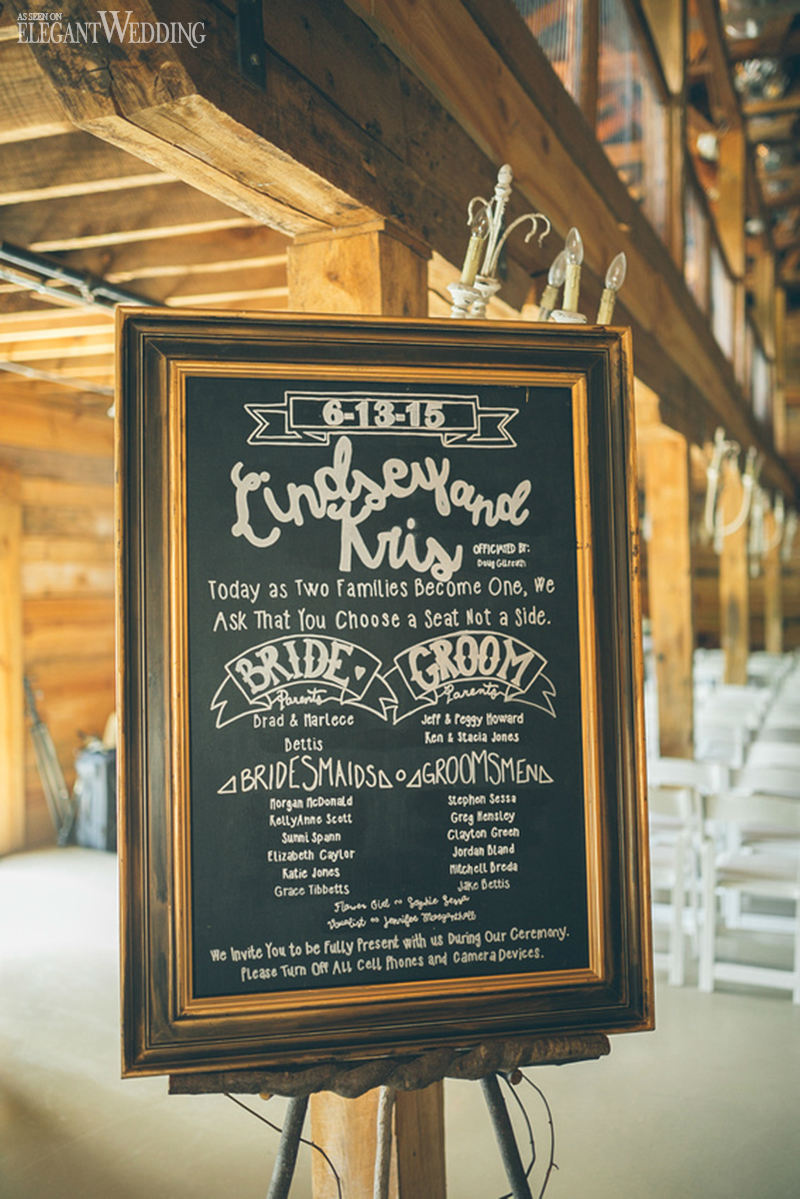 AS SEEN ON
ELEGANTWEDDING
6-13-15
Lindsey and
Kris
OFFICIATED BY:
Doug Gilreath
Today as Two Families Become One, We
Ask That You Choose a Seat Not a Side.
BRIDE GROOM
Parents Parents
Brad & Marlece
Bettis
Jeff & Peggy Howard
Ken & Stacia Jones
BRIDESMAIDS GROOMSMEN
Morgan McDonald
KellyAnne Scott
Sunni Spann
Elizabeth Caylor
Katie Jones
Grace Tibbetts
Stephen Sessa
Greg Hensley
Clayton Green
Jordan Bland
Mitchell Breda
Jake Bettis
Flower Girl ~ Sophie Sessa
Vocalist ~ Jennifer
We Invite You to be Fully Present with us During Our Ceremony.
Please Turn Off All Cell Phones and Camera Devices.